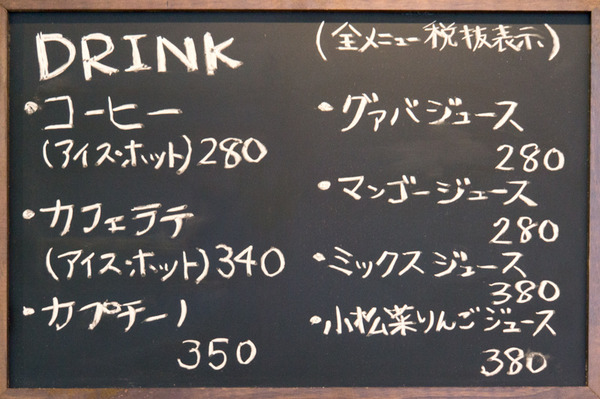 DRINK
(全メニュー税抜表示)
・コーヒー
(アイス・ホット)280
・カフェラテ
(アイス・ホット)340
・カプチーノ
350
・グァバジュース
280
・マンゴージュース
280
・ミックスジュース
380
・小松菜りんごジュース
380